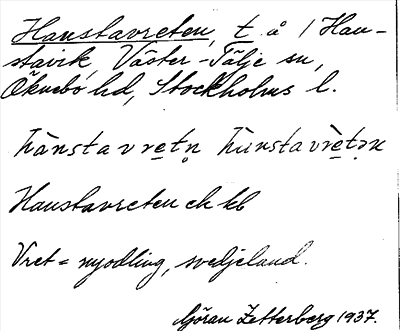 Hanstavreten, t. å 1 Han-
stavik, Väster-Tälje sn,
Öknebo hd, Stockholms l.
hànstavre̲tn̥ hànstavrè̲t.ən
Hanstavreten ek kb
Vret = nyodling, svedjeland.
Göran Zetterberg 1937.